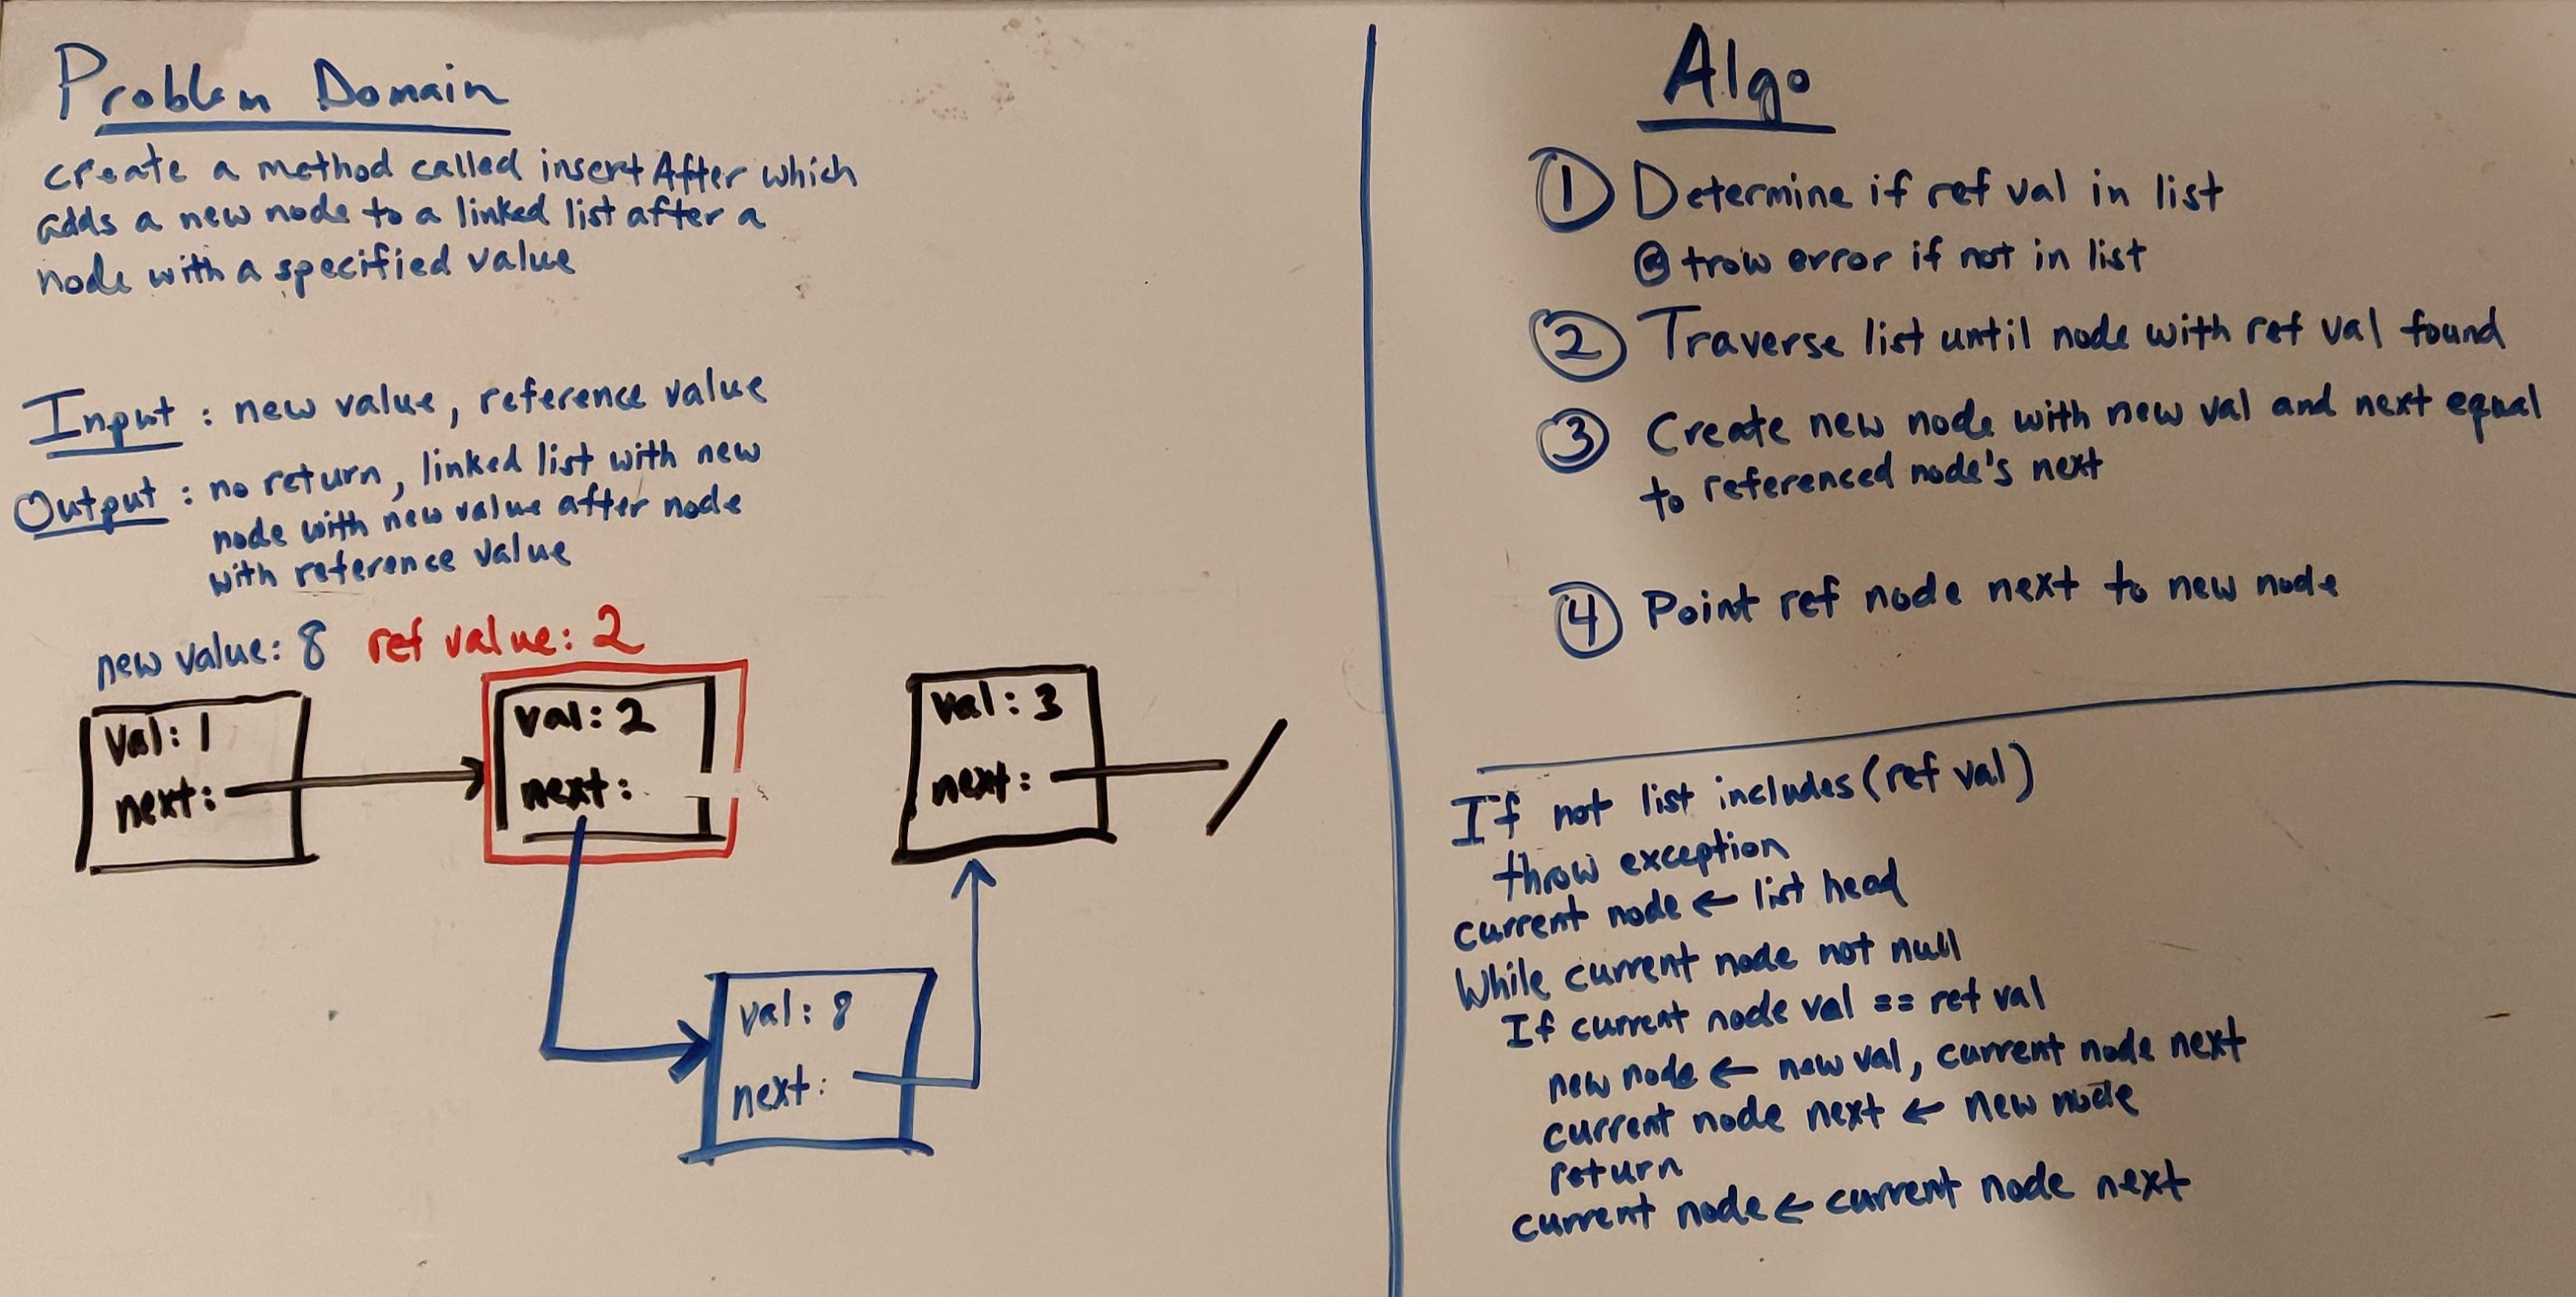 Problem Domain
create a method called insert After which
adds a new node to a linked list after a
node with a specified value
Input : new value, reference value
Output : no return, linked list with new
node with new value after node
with reference value
new value: 8 ref value: 2
val: 1
next:
val: 2
next:
val: 3
next:
val: 8
next:
Algo
① Determine if ref val in list
ⓐ trow error if not in list
② Traverse list until node with ref val found
③ Create new node with new val and next equal
to referenced node's next
④ Point ref node next to new node
If not list includes (ref val)
throw exception
current node ← list head
While current node not null
If current node val == ref val
new node ← new val, current node next
current node next ← new node
return
current node ← current node next